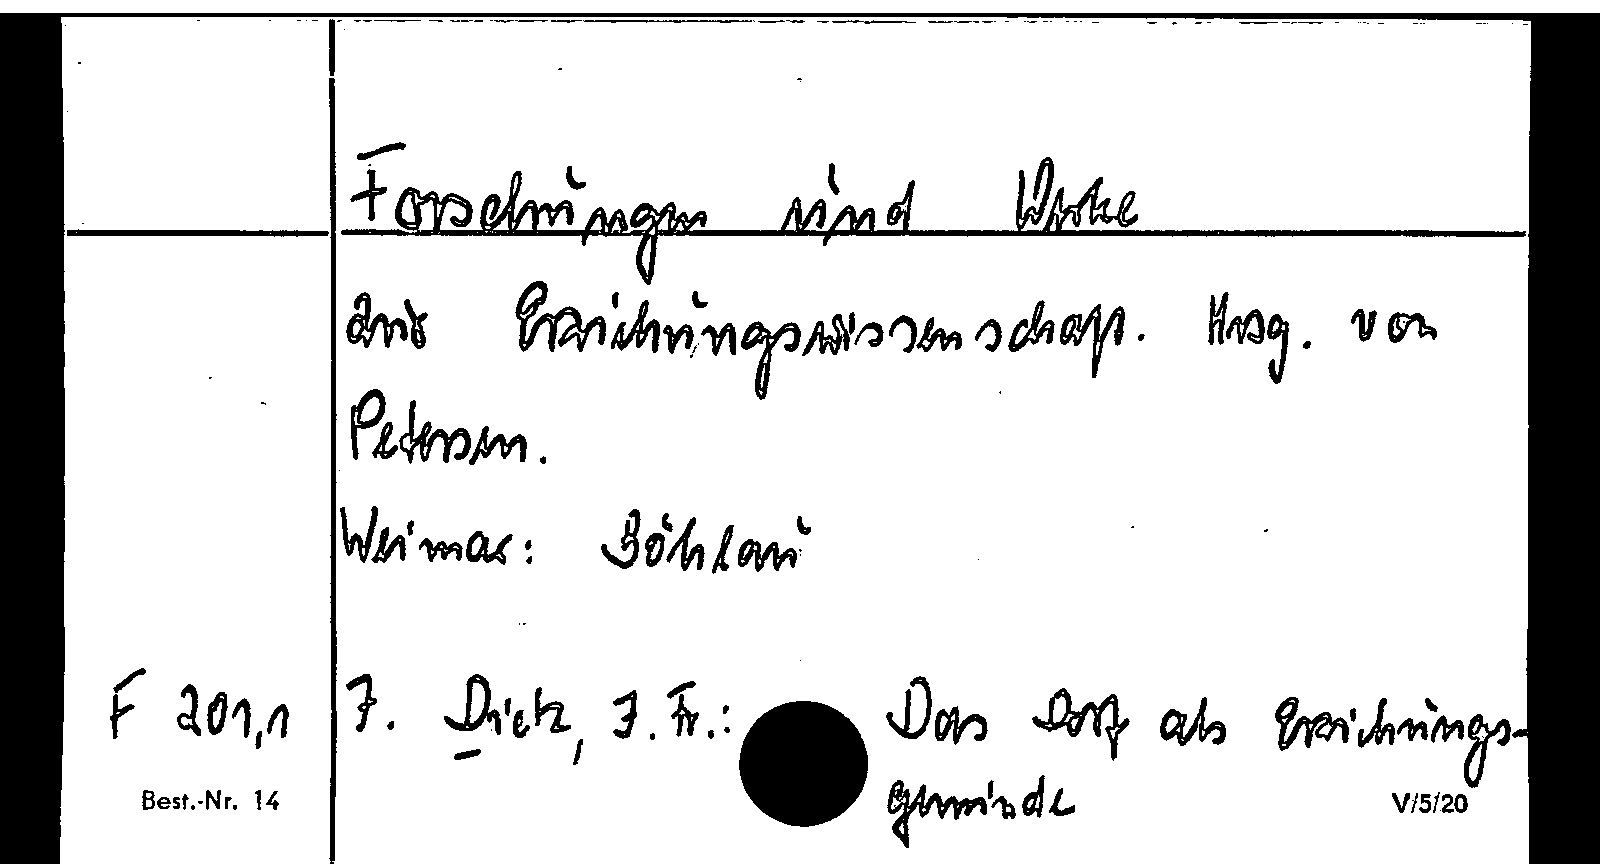 Forschungen und Werke
aus Erziehungswissenschaft. Hrsg. von
Petersen.
Weimar: Böhlau
F 201,1 7. Dietz, J. Fr.: Das Dorf als Erziehungs-
gemeinde
Best.-Nr. 14 V/5/20